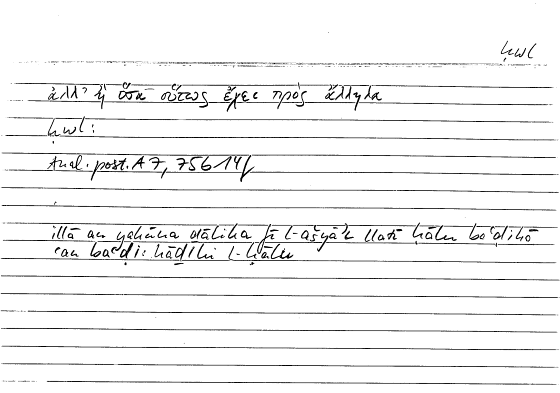 ḥwl
ἀλλ' ἢ ὅσα οὕτως ἔχει πρὸς ἄλληλα
ḥwl:
Anal. post. A 7, 75b14f
illā an yakūna ḏālika fī l-ašyāʾi llatī ḥālu baʿḍihā
ʿan baʿḍi: hāḏihi l-ḥālu